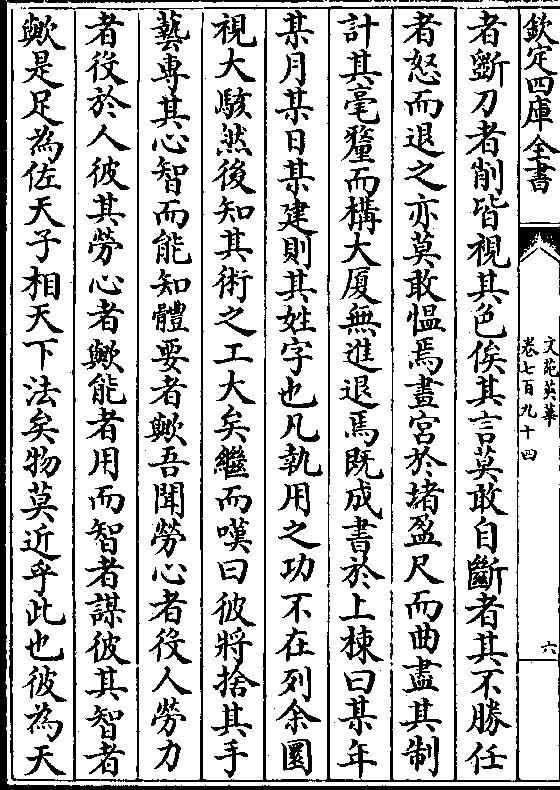 欽定四庫全書
文苑英華
卷七百九十四
六
者斷刀者削皆視其色俟其言莫敢自斷者其不勝任
者怒而退之亦莫敢愠焉畫宮於堵盈尺而曲盡其制
計其毫釐而構大厦無進退焉既成書於上棟曰某年
某月某日某建則其姓字也凡執用之功不在列余圜
視大駭然後知其術之工大矣繼而嘆曰彼將捨其手
藝專其心智而能知體要者歟吾聞勞心者役人勞力
者役於人彼其勞心者歟能者用而智者謀彼其智者
歟是足為佐天子相天下法矣物莫近乎此也彼為天